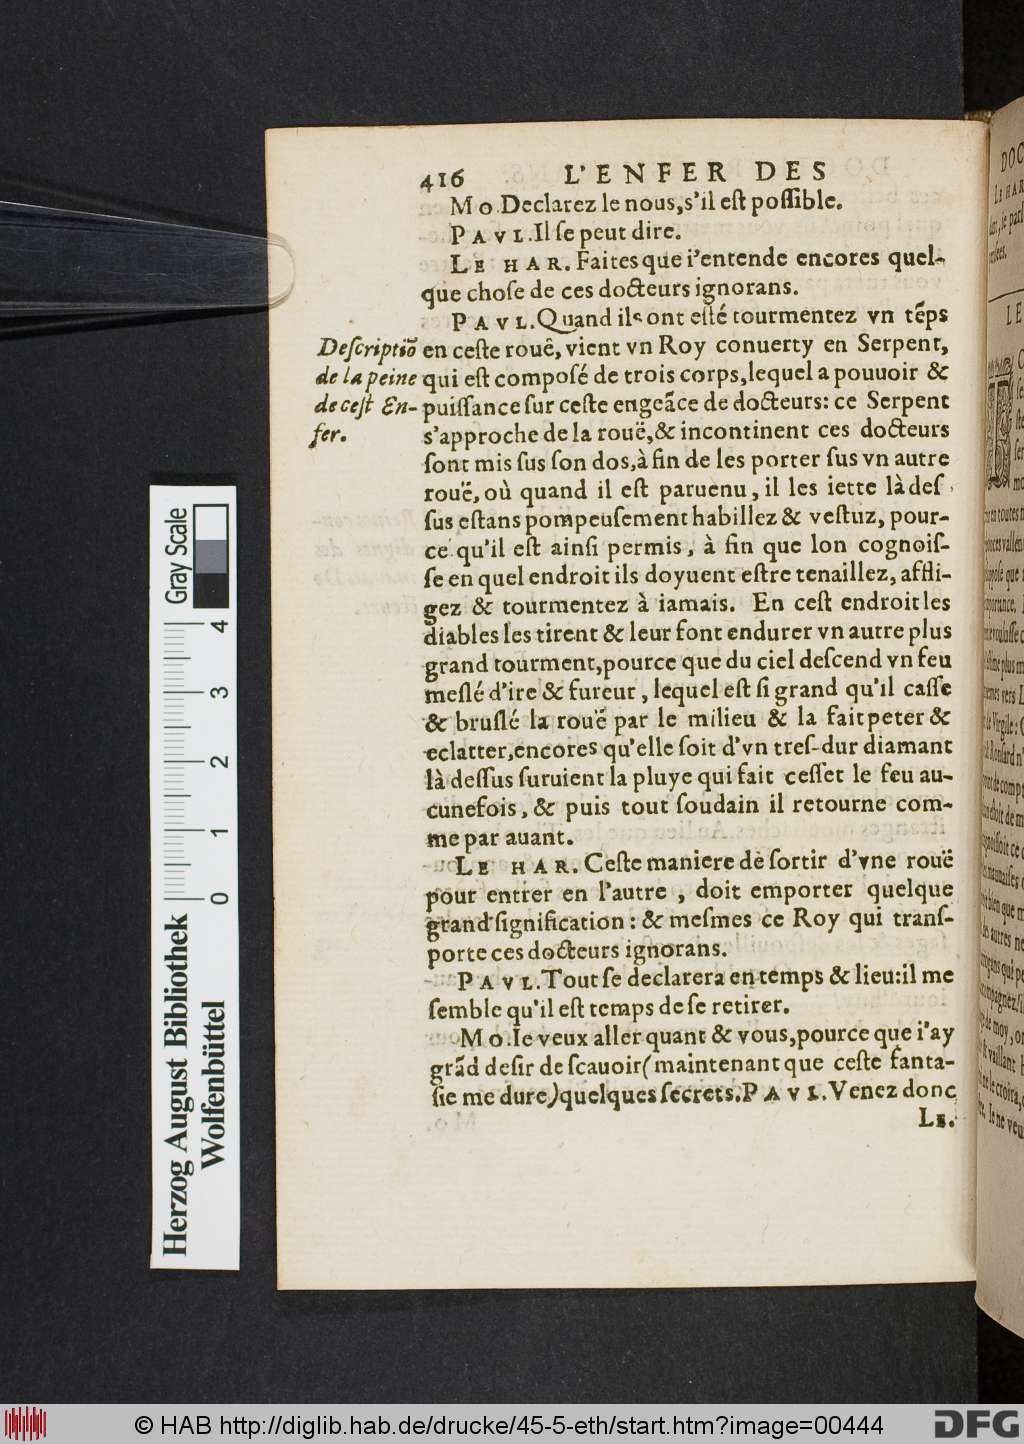 416 L'ENFER DES
MO. Declarez le nous, s'il est possible.
PAVL. Il se peut dire.
LE HAR. Faites que i'entende encores quel-
que chose de ces docteurs ignorans.
PAVL. Quand ils ont esté tourmentez vn tẽps
Descriptiõ
de la peine
de cest En-
fer.
en ceste rouë, vient vn Roy conuerty en Serpent,
qui est composé de trois corps, lequel a pouuoir &
puissance sur ceste engeãce de docteurs: ce Serpent
s'approche de la rouë, & incontinent ces docteurs
sont mis sus son dos, à fin de les porter sus vn autre
rouë, où quand il est paruenu, il les iette là des
sus estans pompeusement habillez & vestuz, pour-
ce qu'il est ainsi permis, à fin que lon cognois-
se en quel endroit ils doyuent estre tenaillez, affli-
gez & tourmentez à iamais. En cest endroit les
diables les tirent & leur font endurer vn autre plus
grand tourment, pource que du ciel descend vn feu
meslé d'ire & fureur, lequel est si grand qu'il casse
& bruslé la rouë par le milieu & la fait peter &
eclatter, encores qu'elle soit d'vn tres-dur diamant
là dessus suruient la pluye qui fait cesser le feu au-
cunefois, & puis tout soudain il retourne com-
me par auant.
LE HAR. Ceste maniere de sortir d'vne rouë
pour entrer en l'autre, doit emporter quelque
grand signification: & mesmes ce Roy qui trans-
porte ces docteurs ignorans.
PAVL. Tout se declarera en temps & lieu: il me
semble qu'il est temps de se retirer.
MO. Ie veux aller quant & vous, pource que i'ay
grãd desir de scauoir (maintenant que ceste fanta-
sie me dure) quelques secrets. PAVL. Venez donc
LE.
DOC
LE HAR
LE
Herzog August Bibliothek
Wolfenbüttel
Gray Scale
0 1 2 3 4
© HAB http://diglib.hab.de/drucke/45-5-eth/start.htm?image=00444
DFG